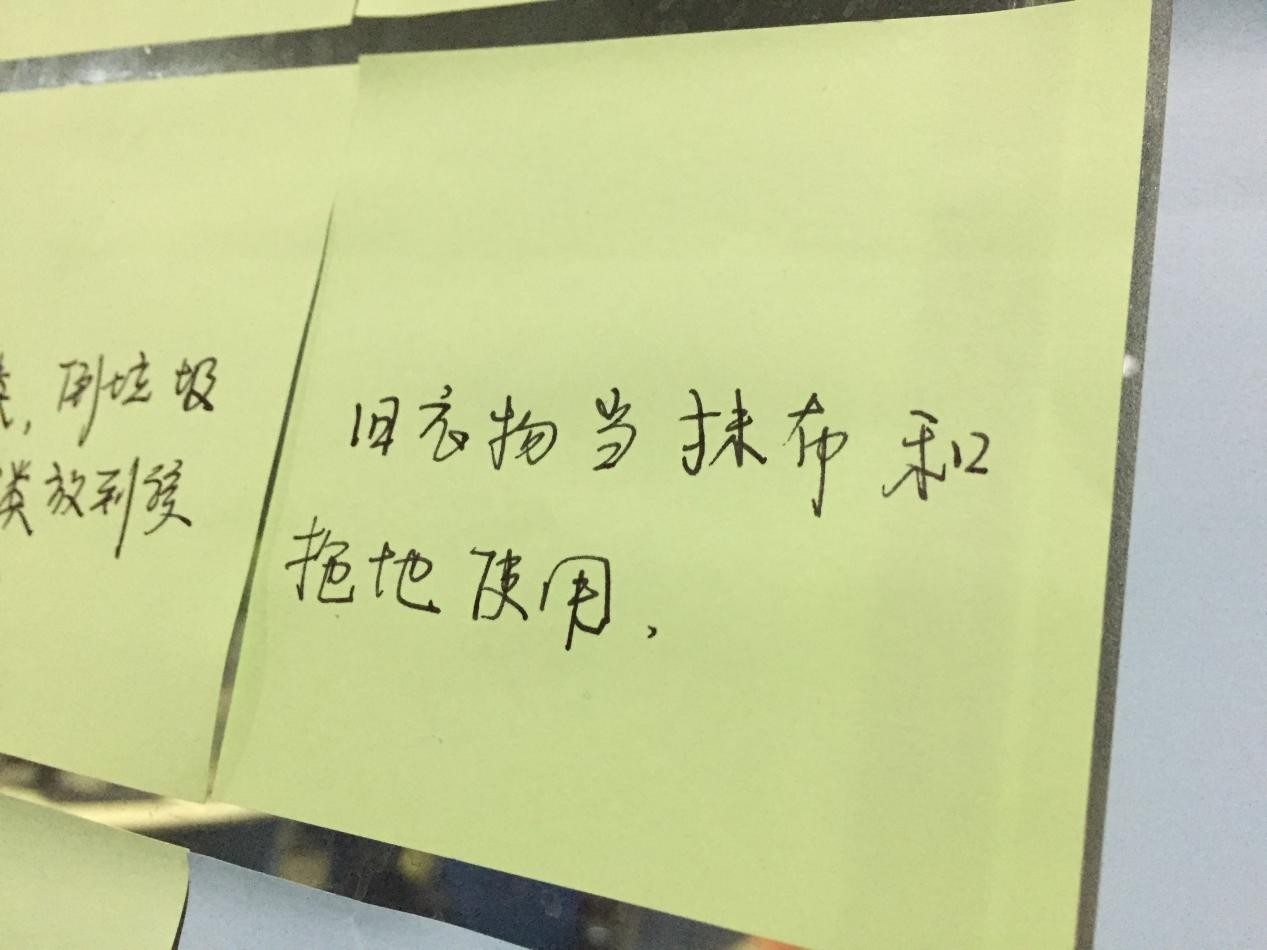 倒垃圾
类放到
旧衣物当抹布和
拖地使用.